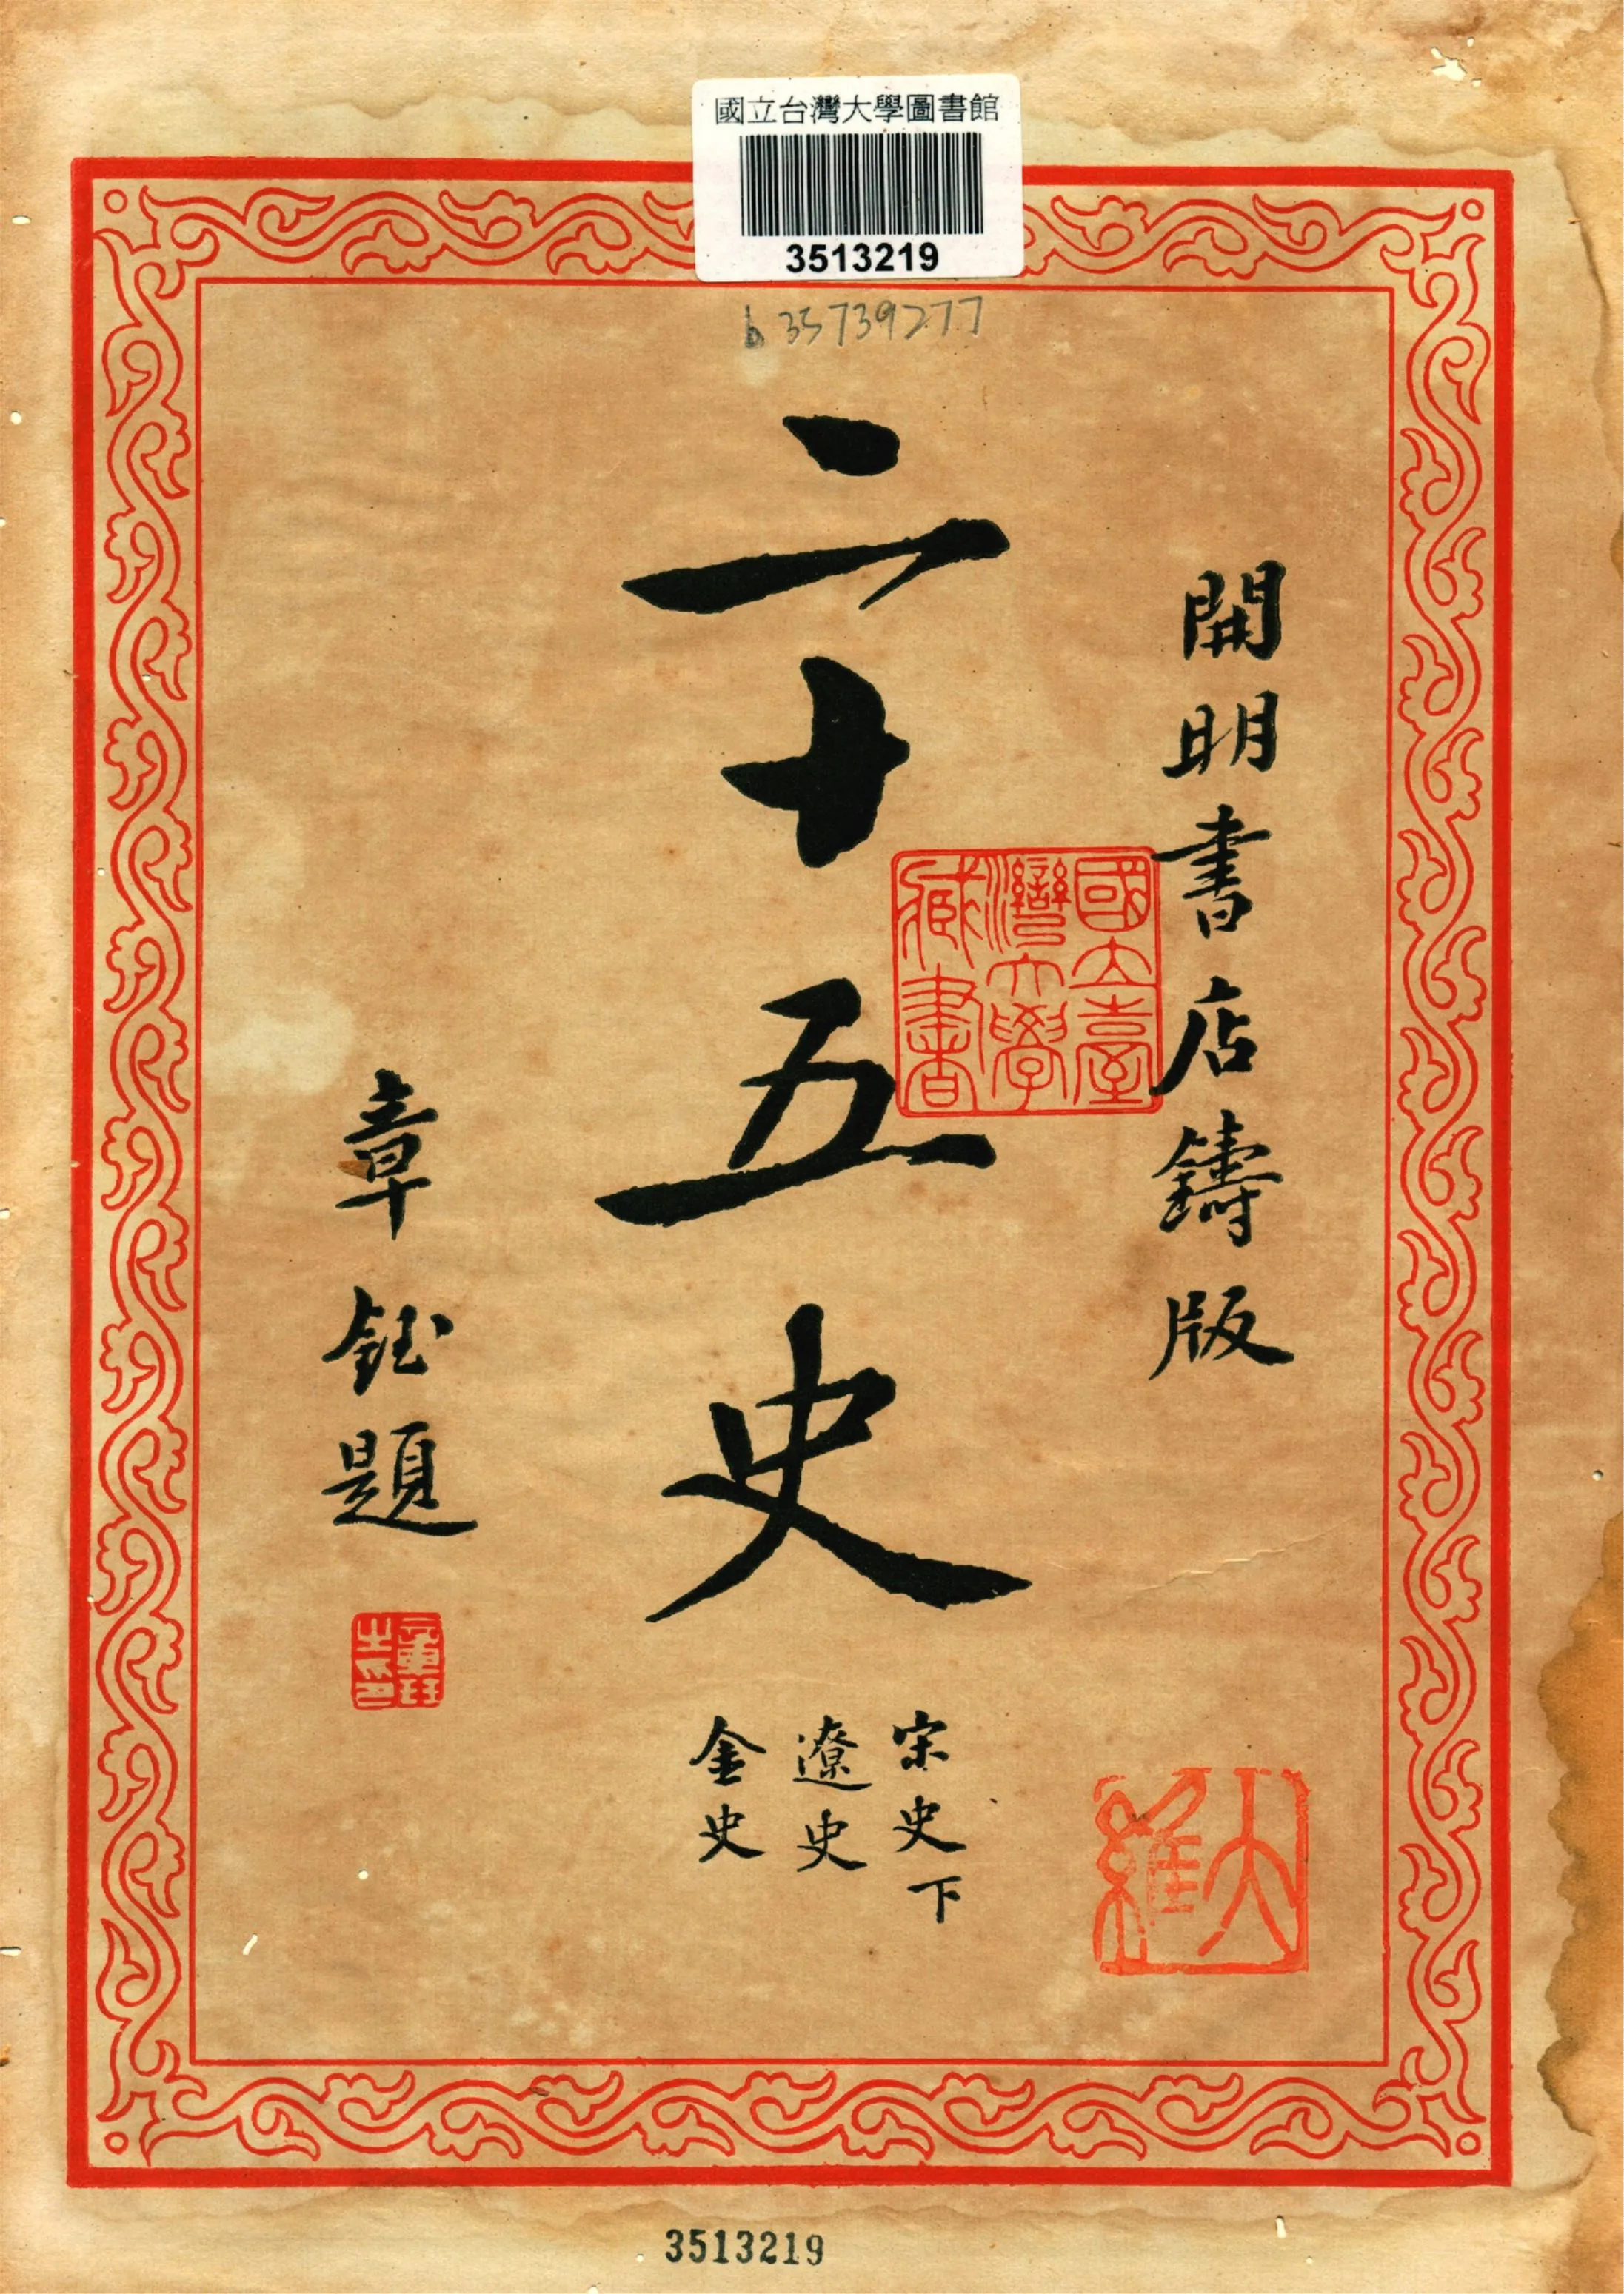 國立台灣大學圖書館
3513219
b35739277
開明書店鑄版
二十五史
宋史下
遼史
金史
章鈺題
國立臺
灣大學
藏書
章鈺
之印
大維
3513219